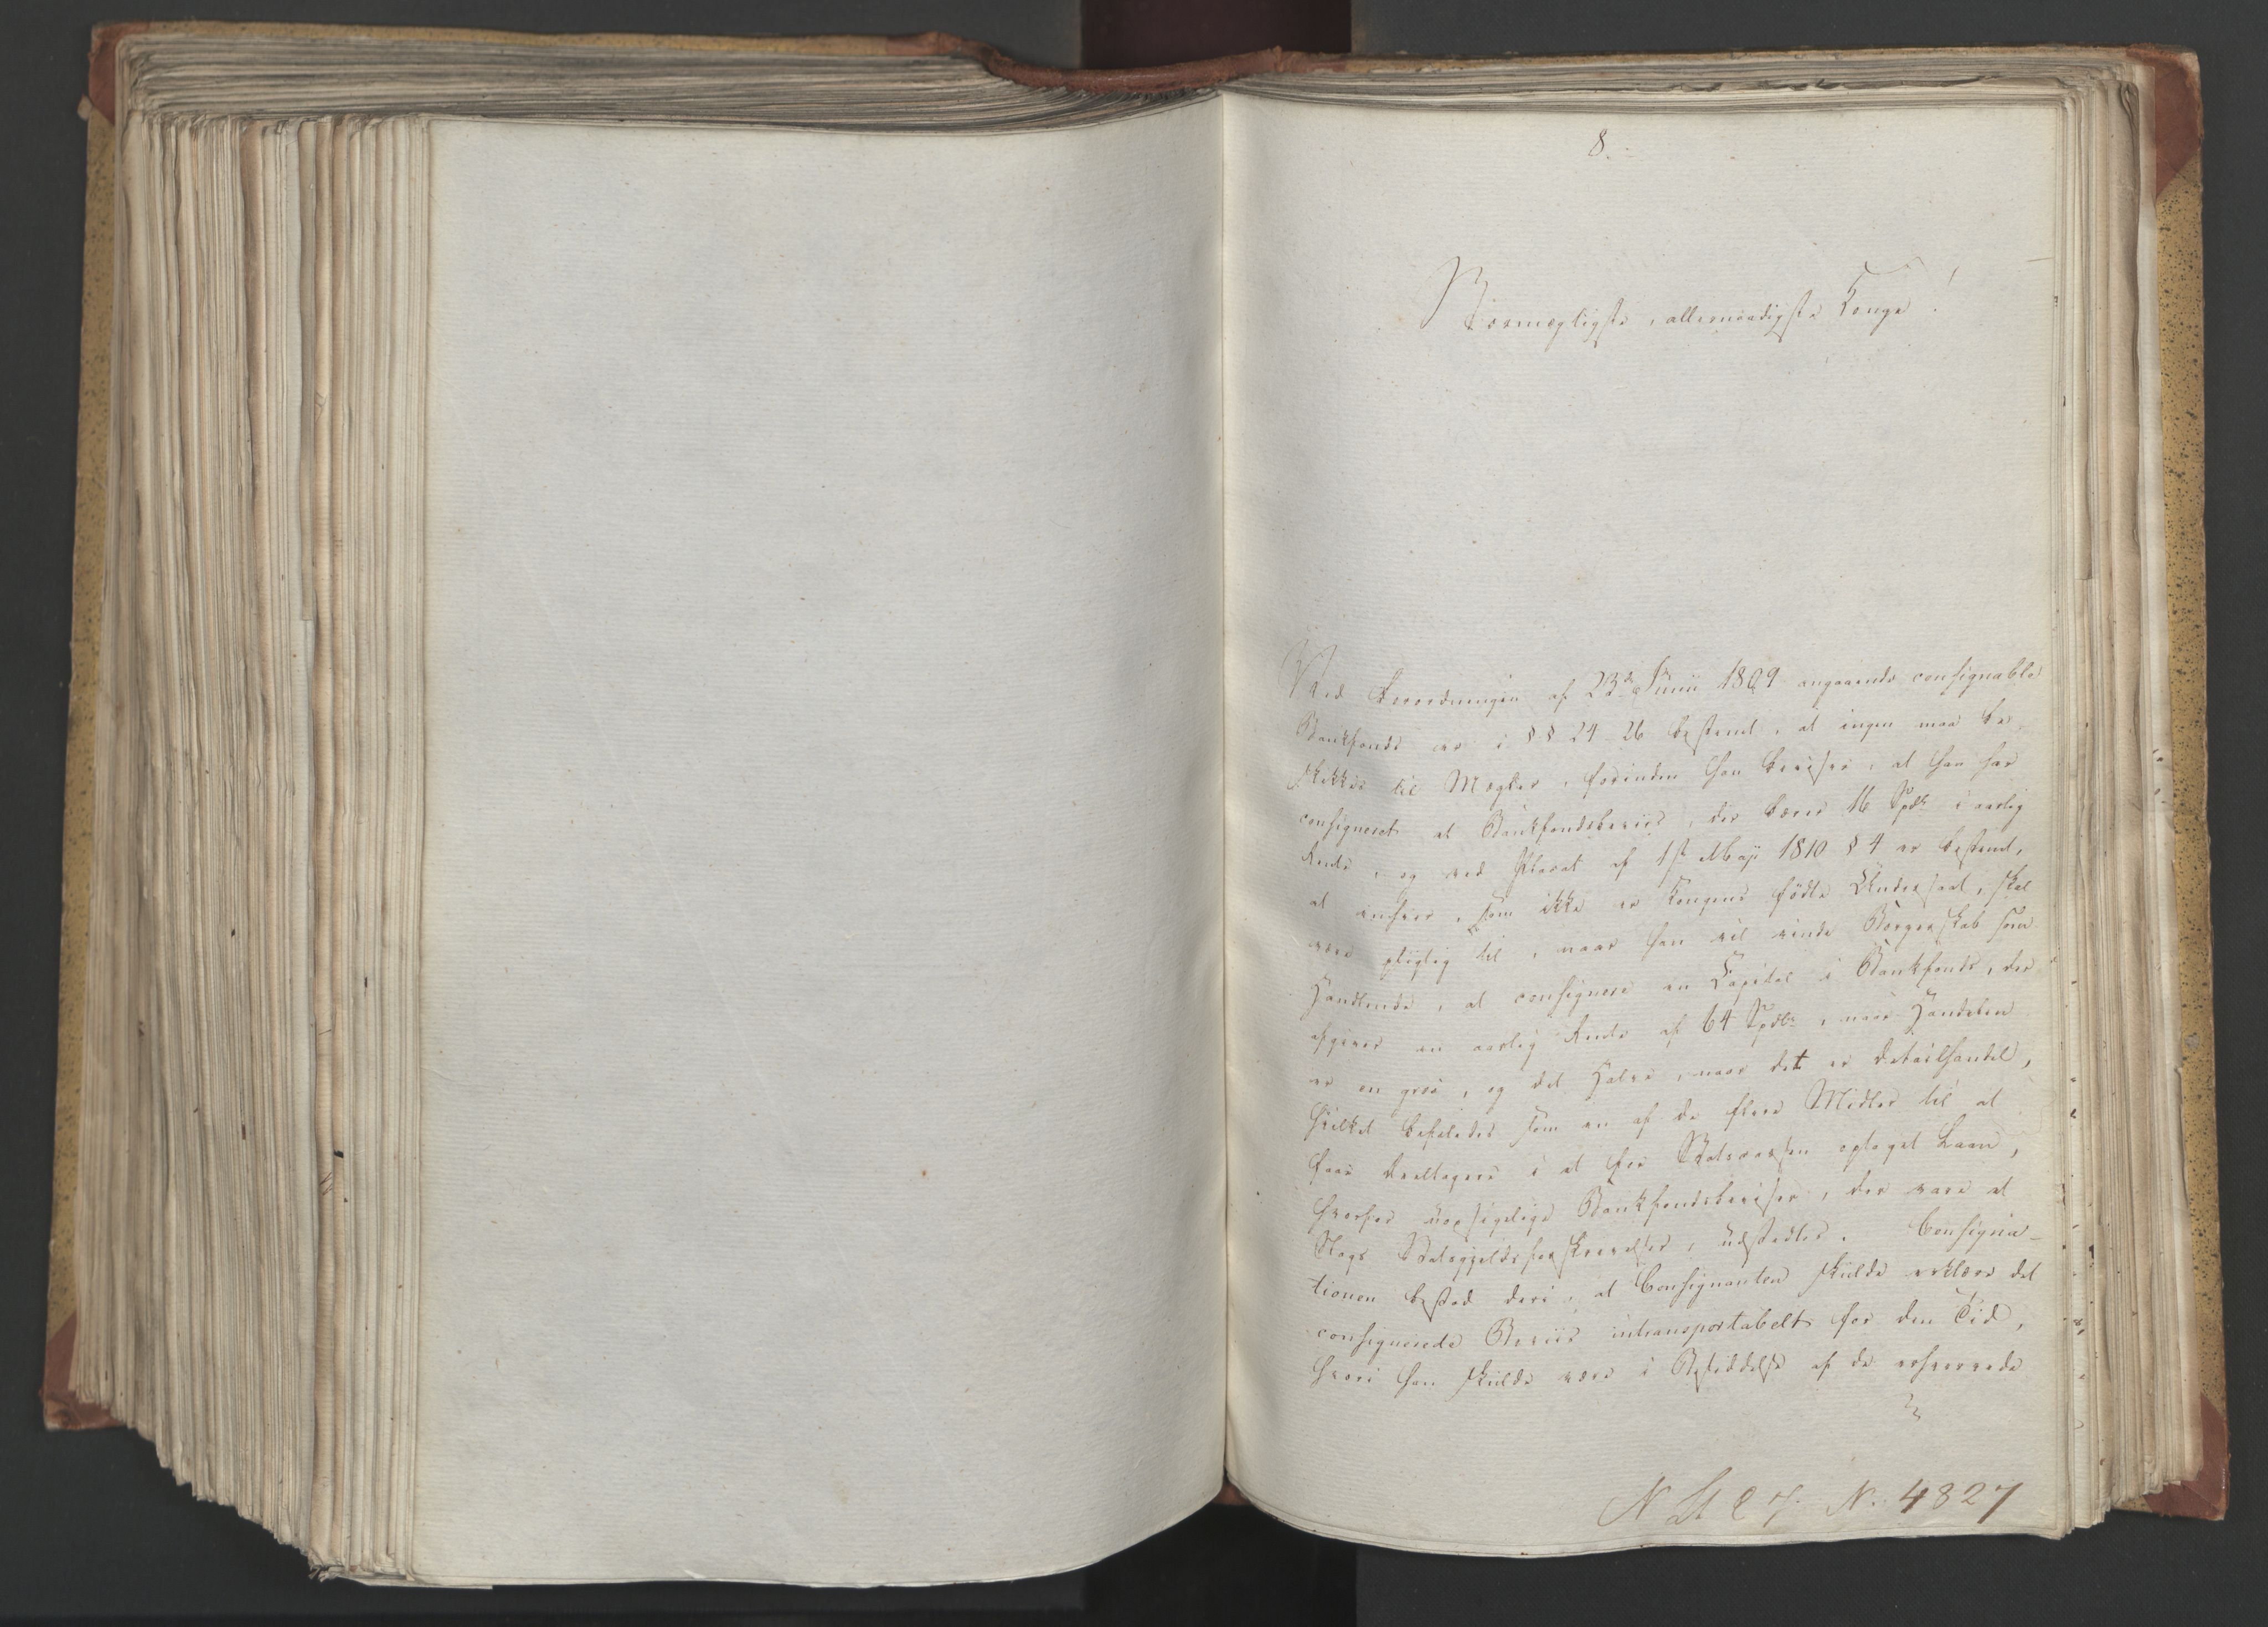 8.
Stormægtigste, allernaadigste Konge!
Ved Forordningen af 23de Junii 1809 angaaende consignable
Bankfonds er i §§ 24 26 bestemt, at ingen maa be-
skikkes til Mægler, forinden han beviser, at han har
consigneret et Bankfondsbeviis, der bærer 16 Spdlr i aarlig
Rente, og ved Placat af 1ste Maji 1810 § 4 er bestemt,
at enhver, som ikke er Kongens fødte Undersaat, skal
være pligtig til, naar han vil vinde Borgerskab som
Handlende, at consignere en Capital i Bankfonds, der
afgiver en aarlig Rente af 64 Spdlr, naar Handelen
er en gros, og det Halve, naar det er Detailhandel,
hvilket befaledes som en af de flere Midler til at
faae Deeltagere i et for Statscassen optaget Laan,
hvorfor uopsigelige Bankfondsbeviser, der vare et
Slags Statsgjeldsforskrivelser, udstedtes. Consigna-
tionen bestod deri, at Consignanten skulde erklære det
consignerede Beviis intransportabelt for den Tid,
hvori han skulde være i Besiddelse af de erhvervede
N St 27. N. 4827